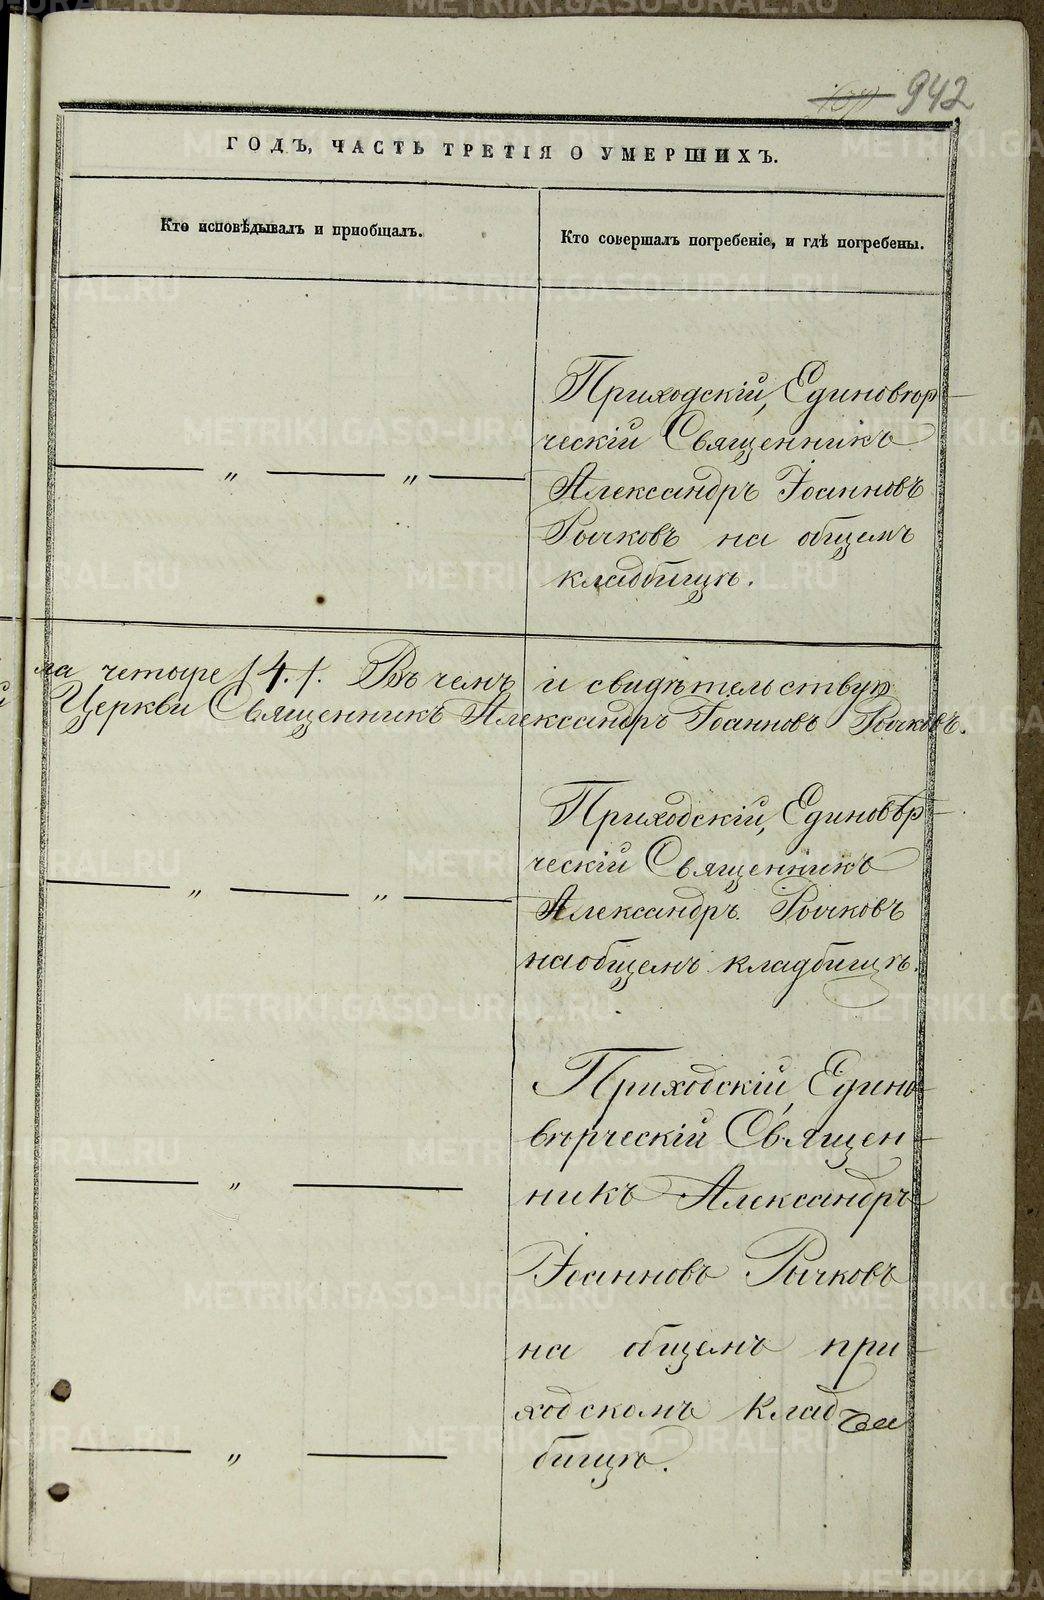 942
ГОДЪ, ЧАСТЬ ТРЕТІЯ О УМЕРШИХЪ.
Кто исповѣдывалъ и приобщалъ.
Кто совершалъ погребеніе, и гдѣ погребены.
Приходскій, Единовѣр-
ческій Священникъ
— „ — „ —
Александръ Іоанновъ
Рычковъ на общемъ
кладбищѣ.
ла четыре /4./. Въ чемъ и свидѣтельствую
Церкви Священникъ Александръ Іоанновъ Рычковъ.
Приходскій, Единовѣр-
ческій Священникъ
— „ — „ —
Александръ Рычковъ
на общемъ кладбищѣ.
Приходскій, Едино-
вѣрческій Священ-
— „ —
никъ Александръ
Іоанновъ Рычковъ
на общемъ при-
ходскомъ клад
— „ —
бищѣ.
METRIKI.GASO-URAL.RU